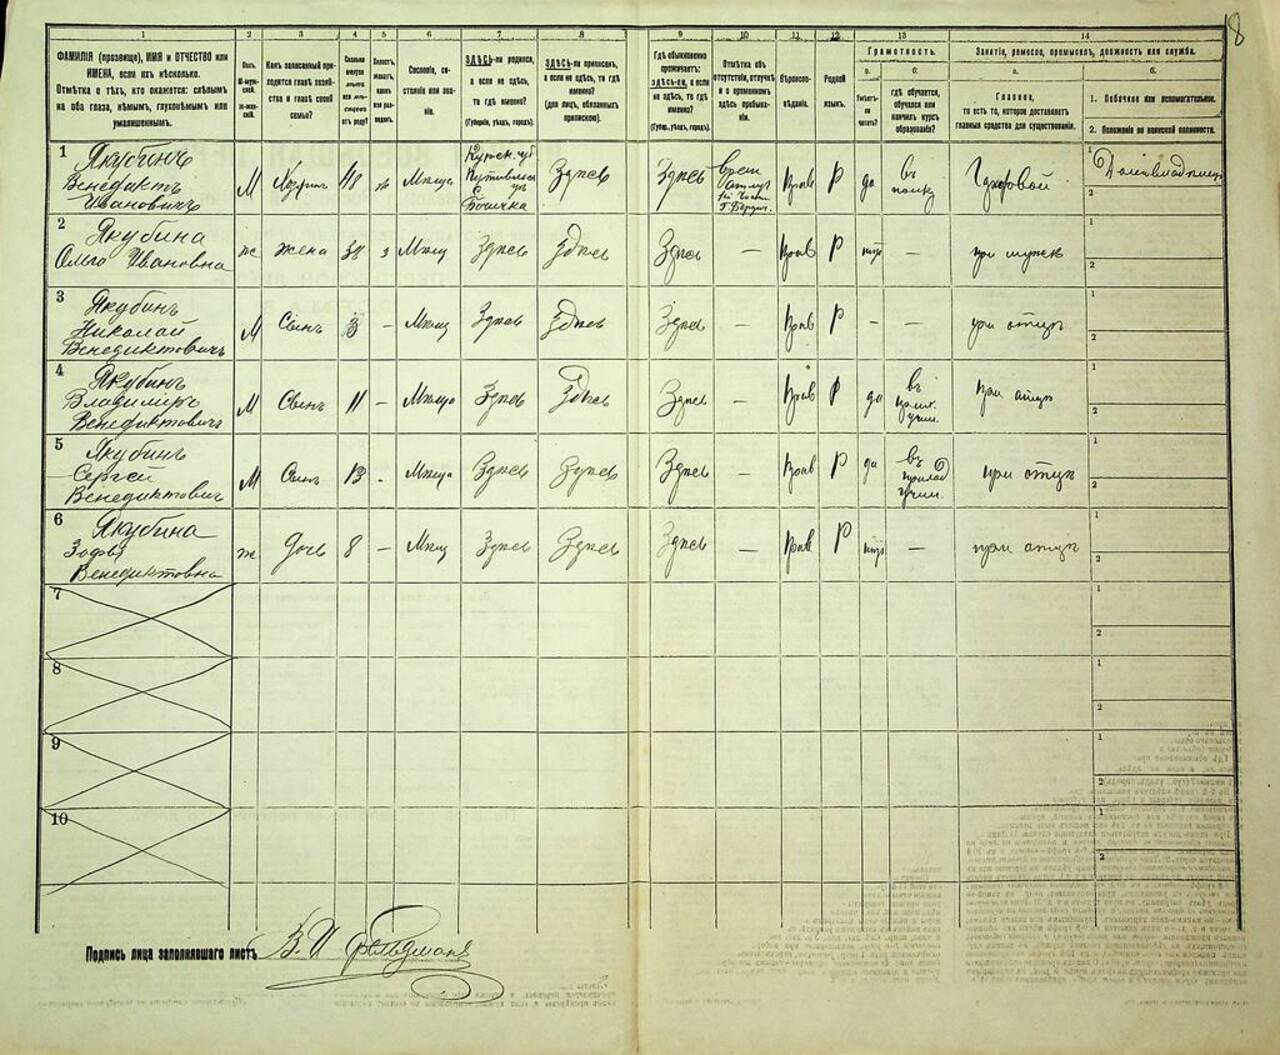 8
1 2 3 4 5 6 7 8 9 10 11 12 13 14
ФАМИЛІЯ (прозвище), ИМЯ и ОТЧЕСТВО или
ИМЕНА, если ихъ нѣсколько.
Отмѣтка о тѣхъ, кто окажется: слѣпымъ
на оба глаза, нѣмымъ, глухонѣмымъ или
умалишеннымъ.
Полъ.
М-муж-
ской.
Ж-жен-
скій.
Какъ записанный при-
ходится главѣ хозяй-
ства и главѣ своей
семьи?
Сколько
минуло
лѣтъ
или мѣ-
сяцевъ
отъ роду?
Холостъ,
женатъ,
вдовъ
или раз-
веденъ.
Сословіе, со-
стояніе или зва-
ніе.
ЗДѢСЬ-ли родился,
а если не здѣсь,
то гдѣ именно?
(Губернія, уѣздъ, городъ).
ЗДѢСЬ-ли приписанъ,
а если не здѣсь, то гдѣ
именно?
(для лицъ, обязанныхъ
припискою).
Гдѣ обыкновенно
проживаетъ:
здѣсь-ли, а если
не здѣсь, то гдѣ
именно?
(Губер., уѣздъ, городъ).
Отмѣтка объ
отсутствіи, отлучкѣ
и о временномъ
здѣсь пребыва-
ніи.
Вѣроиспо-
вѣданіе.
Родной
языкъ.
Грамотность.
а.
Умѣетъ-
ли
читать?
б.
гдѣ обучается,
обучался или
кончилъ курсъ
образованія?
Занятія, ремесло, промыселъ, должность или служба.
а.
Главное,
то есть то, которое доставляетъ
главныя средства для существованія.
б.
1. Побочное или вспомогательное.
2. Положеніе по воинской повинности.
1 Якубинъ
Венедиктъ
Ивановичъ
М Хозяинъ 48 ж Мѣща
Курск. губ
Путивльск
у
с
Бочечка
Здѣсь Здѣсь
Прав Р да
въ
полку
Домовладѣлец
1
2
2 Якубина
Ольга Ивановна
ж жена 38 з Мѣщ Здѣсь Здѣсь Здѣсь — Прав Р — при мужѣ
1
2
3 Якубинъ
Николай
Венедиктовичъ
М Сынъ 3 — Мѣщ Здѣсь Здѣсь Здѣсь — Прав Р — — при отцѣ
1
2
4 Якубинъ
Владимиръ
Венедиктовичъ
М Сынъ 11 — Мѣща Здѣсь Здѣсь Здѣсь — Прав Р да
въ
учил.
при отцѣ
1
2
5 Якубинъ
Сергей
Венедиктович
М Сынъ 13 - Мѣща Здѣсь Здѣсь Здѣсь — Прав Р да
въ
учил.
при отцѣ
1
2
6 Якубина
Зофья
Венедиктовна
ж дочь 8 — Мѣщ Здѣсь Здѣсь Здѣсь — Прав Р — при отцѣ
1
2
7
1
2
8
1
2
9
1
2
10
1
2
Подпись лица заполнявшаго листъ В. И Фельдман